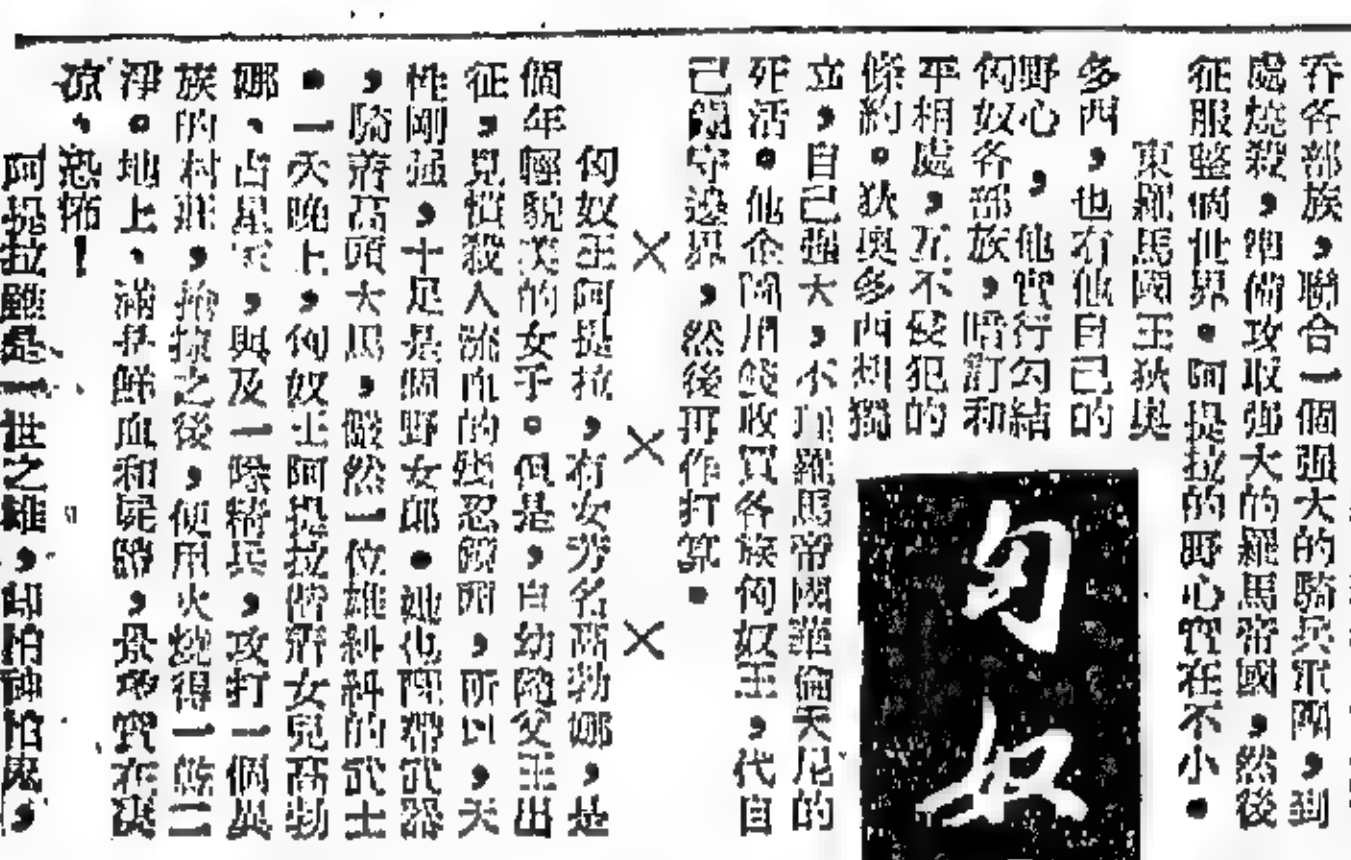 吞各部族，聯合一個强大的騎兵軍團，到
處燒殺，準備攻取强大的羅馬帝國，然後
征服整個世界。阿提拉的野心實在不小。
東羅馬國王狄奥
多西，也有他自己的
野心，他實行勾結
匈奴各部族，暗訂和
平相處，互不侵犯的
條約。狄奥多西想獨
立，自己强大，不理羅馬帝國華倫天尼的
死活。他企圖用錢收買各族匈奴王，代自
己鎮守邊界，然後再作打算。
匈奴
×××
匈奴王阿提拉，有女芳名高勃娜，是
個年輕貌美的女子。但是，自幼隨父王出
征，見慣殺人流血的殘忍鏡頭，所以，天
性剛强，十足是個野女郎。她也配帶武器
，騎着高頭大馬，儼然一位雄糾糾的武士
。一天晚上，匈奴王阿提拉偕着女兒高勃
娜、占星家，與及一隊精兵，攻打一個異
族的村莊，搶掠之後，便用火燒得一乾二
淨。地上、滿是鮮血和屍體，景象實在淒
凉、恐怖！
阿提拉雖是一世之雄，却怕神怕鬼，